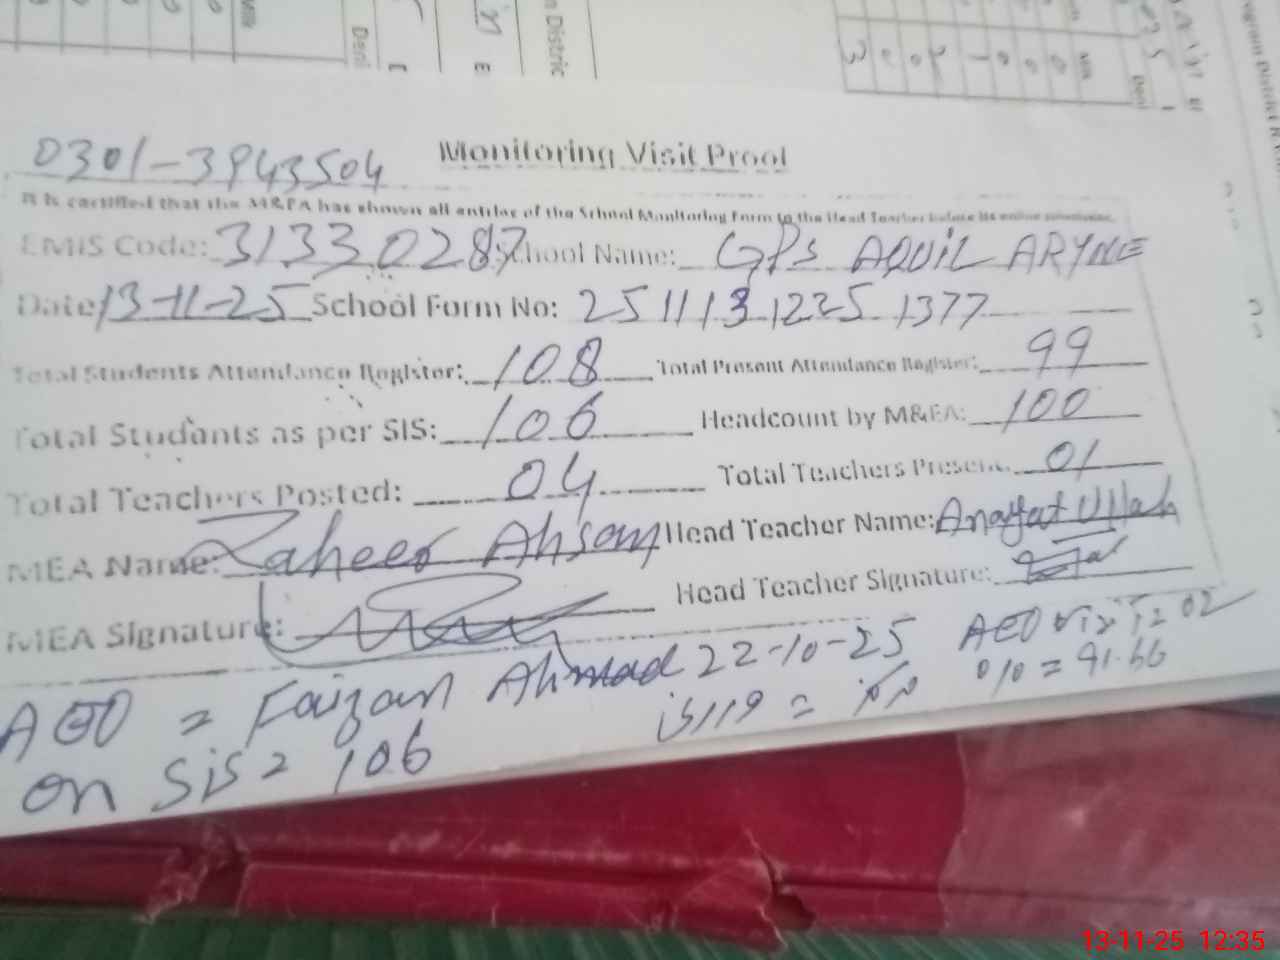 0301-3943504
Monitoring Visit Proof
It is certified that the M&EA has shown all entries of the School Monitoring Form to the Head Teacher before its online submission.
EMIS Code: 31330287 School Name: GPS AQUIL ARYNE
Date 13-11-25 School Form No: 251113 1225 1377
Total Students Attendance Register: 108 Total Present Attendance Register: 99
Total Students as per SIS: 106 Headcount by M&EA: 100
Total Teachers Posted: 04 Total Teachers Present: 01
MEA Name: Zaheer Ahsan Head Teacher Name: Anayat Ullah
MEA Signature: Head Teacher Signature:
AEO = Faizan Ahmad 22-10-25 AEO visits 02
on SiS = 106 0/0 = 91.66
13-11-25 12:35